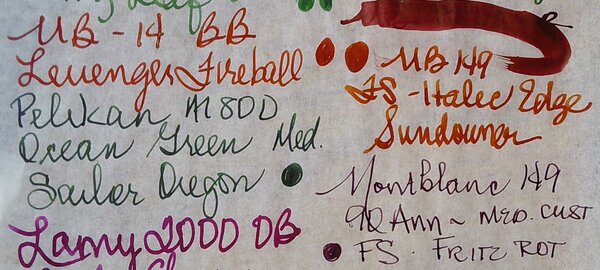 MB - 14 BB
Levenger Fireball
Pelikan M800
Ocean Green Med.
Sailor Oregon
Lamy 2000 OB
MB 149
FS - Italic Edge
Sundowner
Montblanc 149
90 Ann ~ MED. CUST
FS. FRITZ ROT